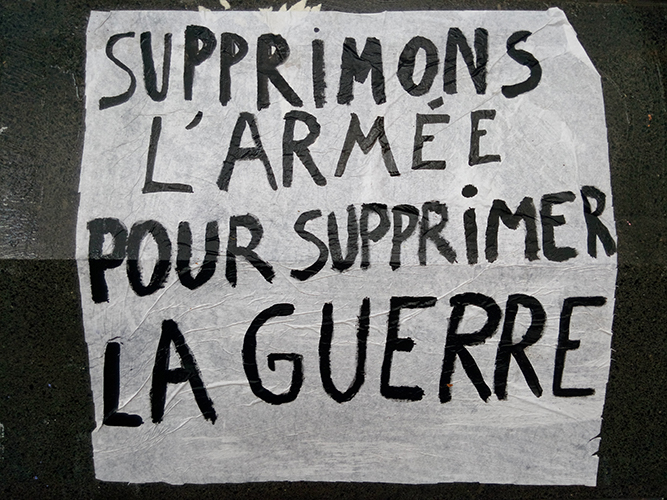 SUPPRiMONS
L'ARMÉE
POUR SUPPRiMER
LA GUERRE